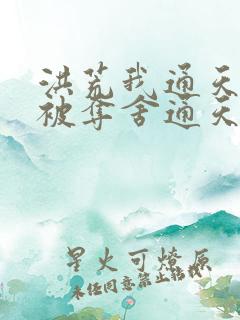 洪荒我通天
被夺舍通天
星火可燎原
未任同意禁止转载